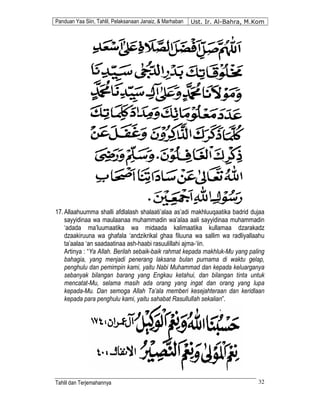 Panduan Yaa Siin, Tahlil, Pelaksanaan Janaiz, & Marhaban Ust. Ir. Al-Bahra, M.Kom
اَللّٰهُمَّ صَلِّ اَفْضَلَ الصَّلَاةِ عَلٰى اَسْعَدِ
مَخْلُوْقَاتِكَ بَدْرِ الدُّجٰى سَيِّدِنَا
وَمَوْلَانَا مُحَمَّدٍ وَعَلٰى اٰلِ سَيِّدِنَا مُحَمَّدٍ
عَدَدَ مَعْلُوْمَاتِكَ وَمِدَادَ كَلِمَاتِكَ
كُلَّمَا ذَكَرَكَ الذَّاكِرُوْنَ وَغَفَلَ عَنْ
ذِكْرِكَ الْغَافِلُوْنَ. وَسَلِّمْ وَرَضِيَ
اللهُ تَعَالٰى عَنْ سَادَاتِنَا اَصْحَابِ
رَسُوْلِ اللهِ اَجْمَعِيْنَ.
17. Allaahuumma shalli afdlalash shalaati'alaa as'adi makhluuqaatika badrid dujaa
sayyidinaa wa maulaanaa muhammadin wa'alaa aali sayyidinaa muhammadin
'adada ma'luumaatika wa midaada kalimaatika kullamaa dzarakadz
dzaakiruuna wa ghafala 'andzikrikal ghaa filuuna wa sallim wa radliyallaahu
ta'aalaa 'an saadaatinaa ash-haabi rasuulillahi ajma-'iin.
Artinya : "Ya Allah. Berilah sebaik-baik rahmat kepada makhluk-Mu yang paling
bahagia, yang menjadi penerang laksana bulan purnama di waktu gelap,
penghulu dan pemimpin kami, yaitu Nabi Muhammad dan kepada keluarganya
sebanyak bilangan barang yang Engkau ketahui, dan bilangan tinta untuk
mencatat-Mu, selama masih ada orang yang ingat dan orang yang lupa
kepada-Mu. Dan semoga Allah Ta'ala memberi kesejahteriaan dan keridlaan
kepada para penghulu kami, yaitu sahabat Rasullullah sekalian".
حَسْبُنَا اللهُ وَنِعْمَ الْوَكِيْلُ اٰل عمران : ١٧٤
نِعْمَ الْمَوْلٰى وَنِعْمَ النَّصِيْرُ الانفال : ٤٠
Tahlil dan Terjemahannya 32